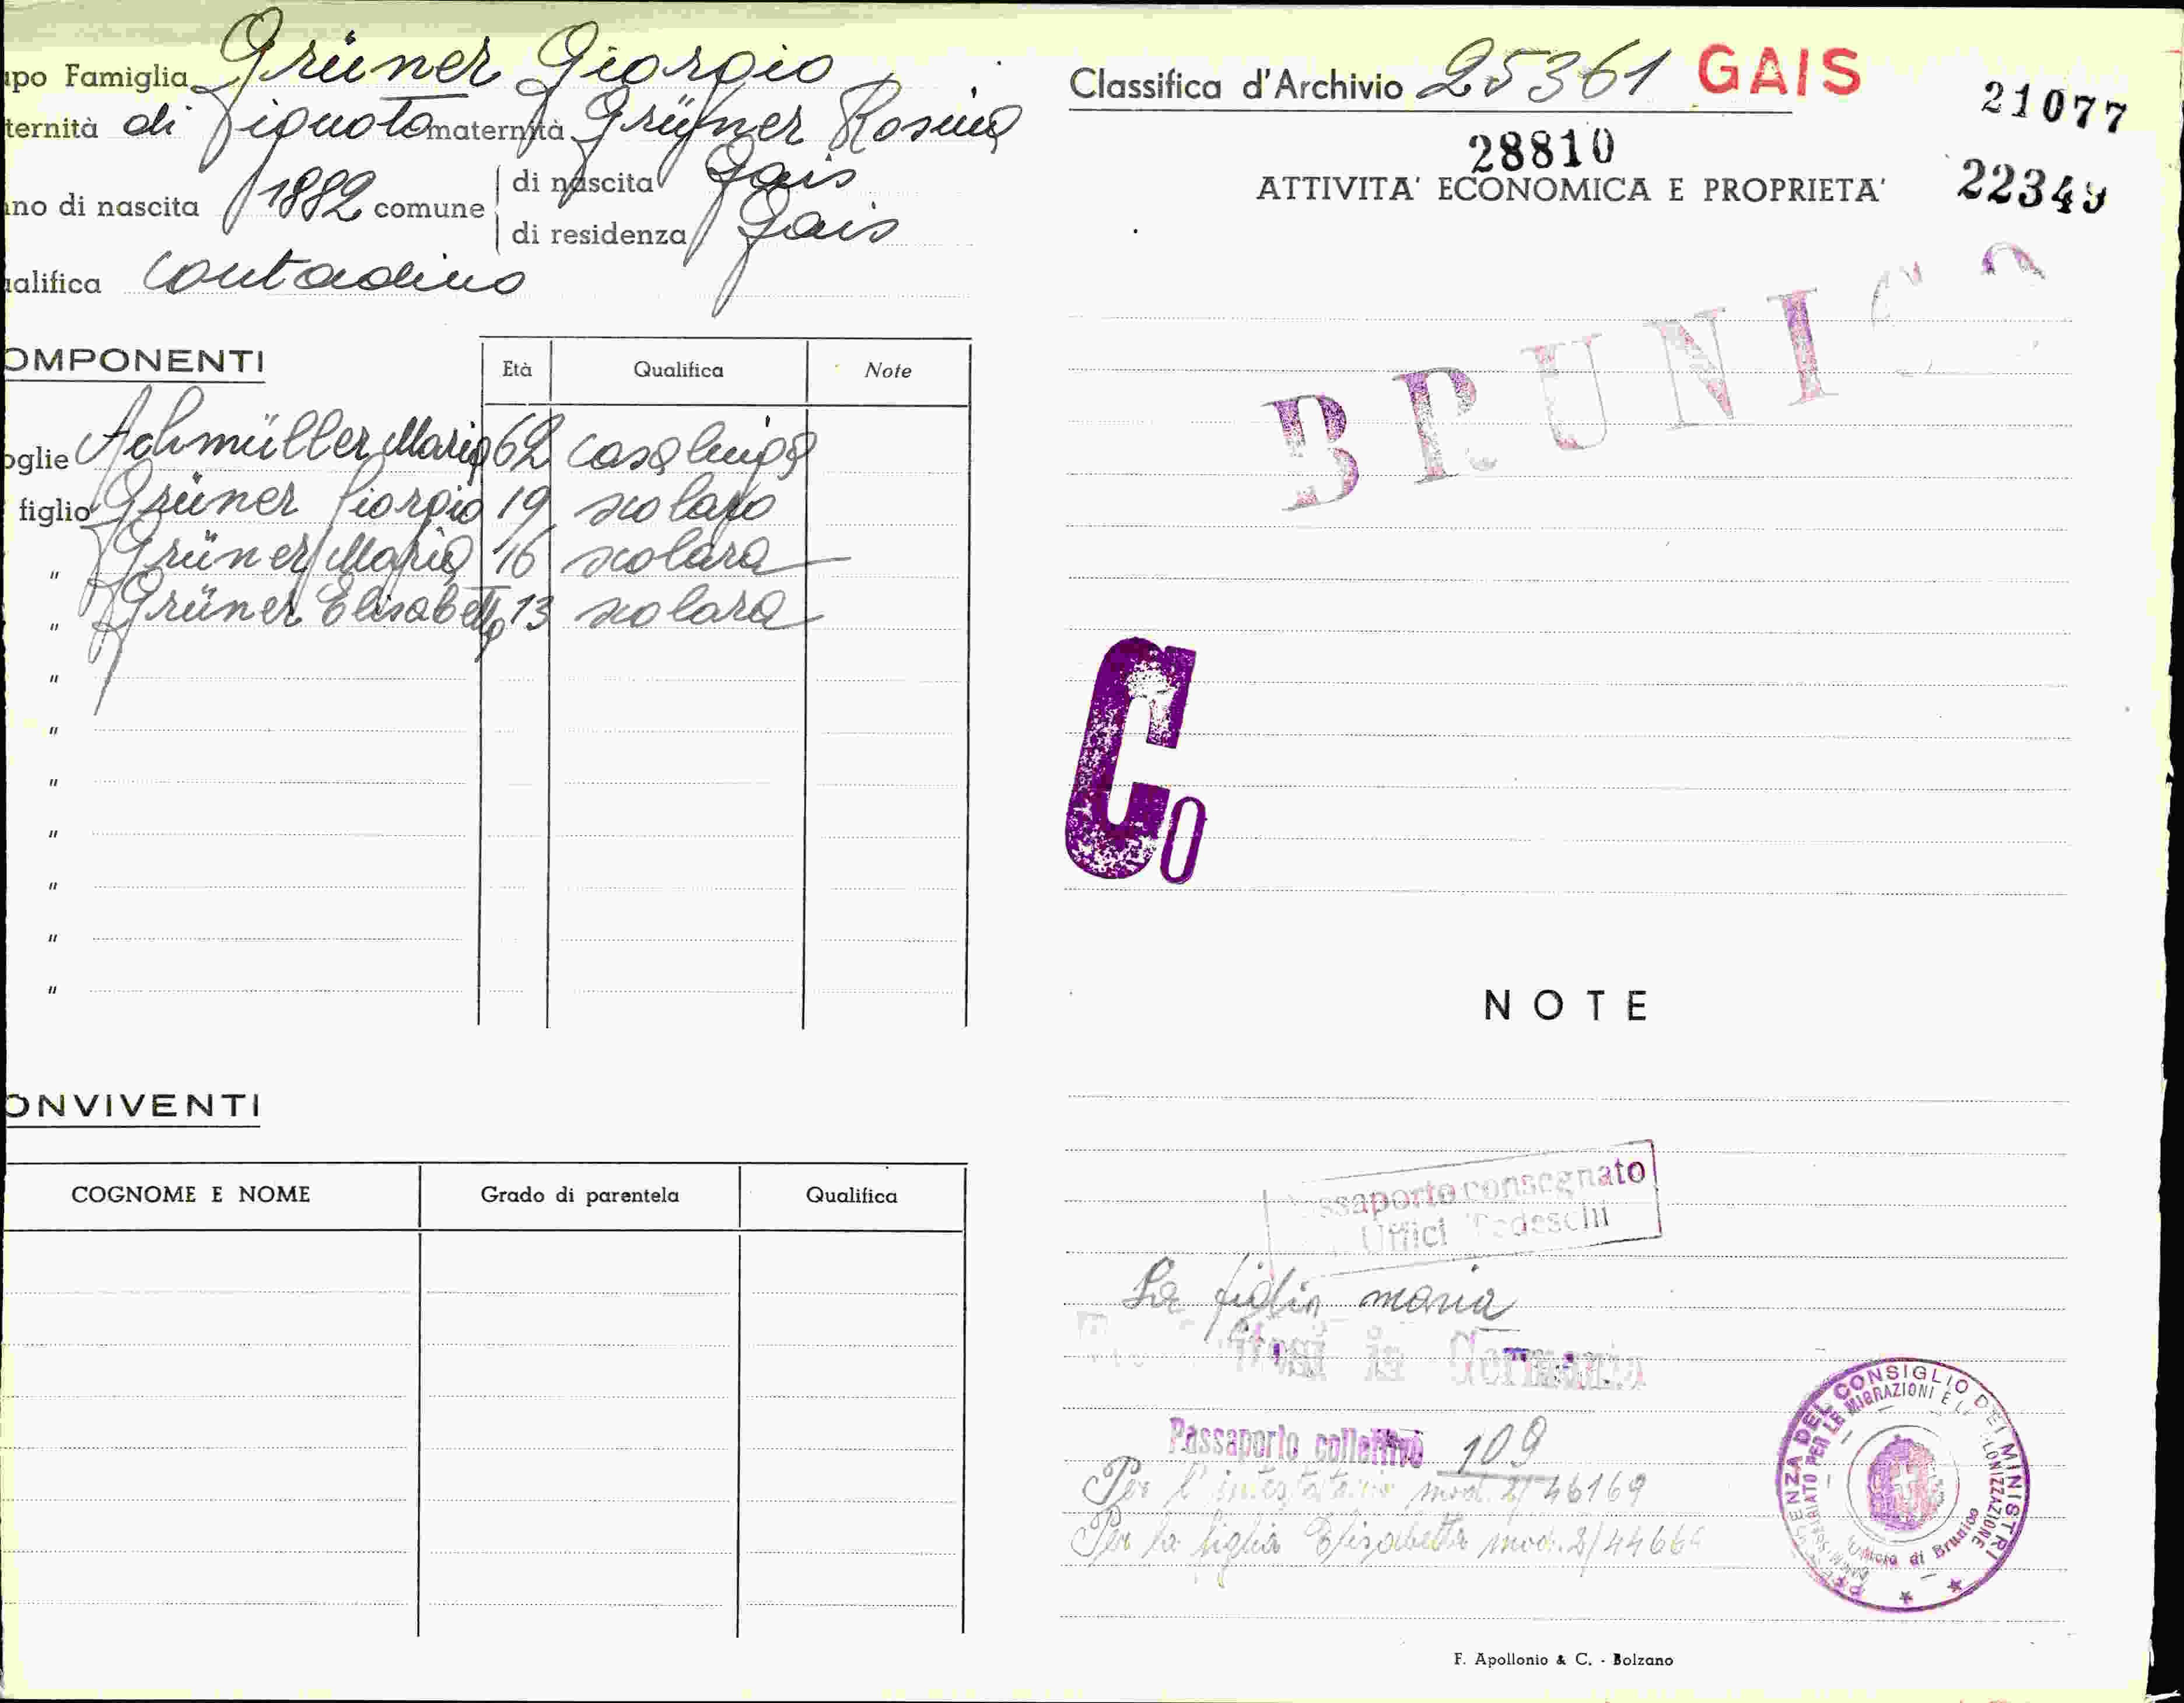 apo Famiglia Grüner Giorgio
ternità di Ignoto maternità Grüner Rosina
nno di nascita 1882 comune di nascita Gais
di residenza Gais
alifica contadino
OMPONENTI Età Qualifica Note
oglie Achmüller Maria 62 casalinga
figlio Grüner Giorgio 19 scolaro
" Grüner Maria 16 scolara
" Grüner Elisabetta 13 scolara
"
"
"
"
"
"
"
ONVIVENTI
COGNOME E NOME Grado di parentela Qualifica
Classifica d'Archivio 25361 GAIS
21077
28810
ATTIVITA' ECONOMICA E PROPRIETA'
22349
BRUNICO
Co
NOTE
ssaporto consegnato
Uffici Tedeschi
La figlia maria
in Germania
Passaporto collettivo 109
Per l'intestatario mod. 2/46169
Per la figlia Elisabetta mod. 2/44664
CONSIGLIO DEI MINISTRI
PER LE MIGRAZIONI E
Ufficio di Brunico
F. Apollonio & C. - Bolzano